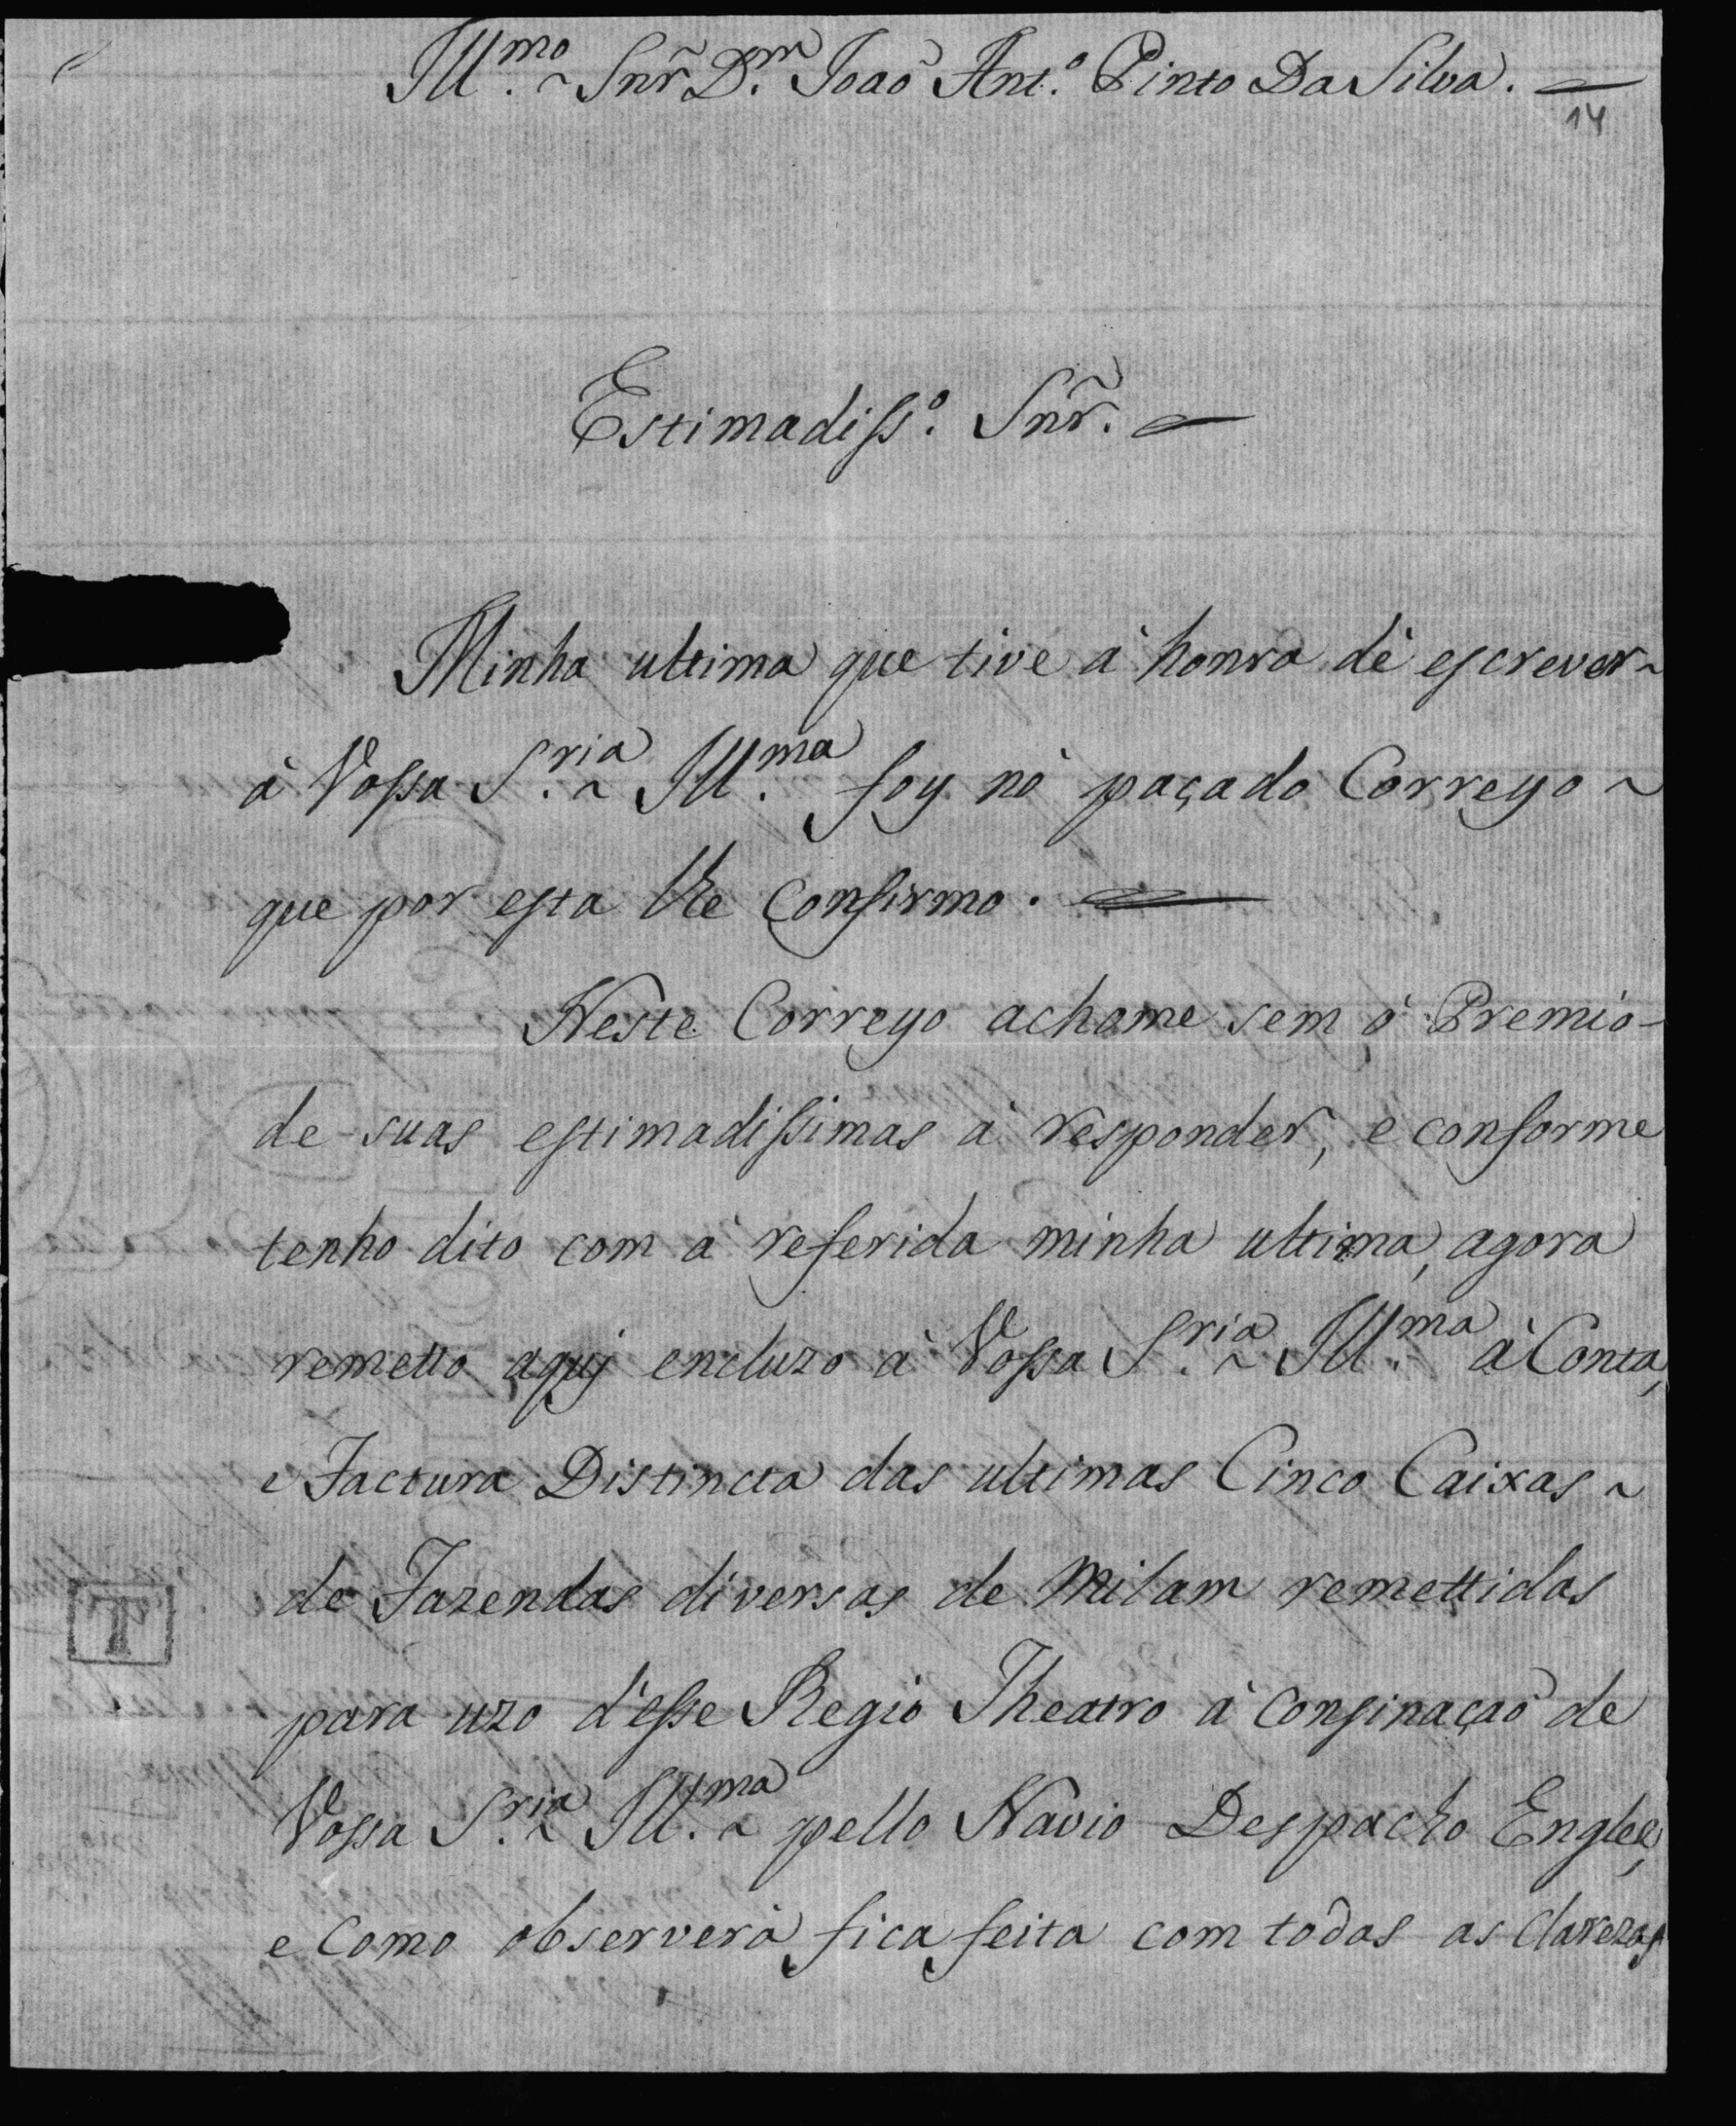 Ill.mo ~ Snr̃ D.m Joaõ Ant.o Pinto Da Silva.
14
Estimadiss.o Snr̃.
Minha ultima que tive à honra dè escrever ~
à Vossa S.ria ~ Ill.ma foy nò paçado Correyo ~
que por esta lhe Confirmo.
Neste Correyo achome sem ò Premio -
de suas estimadissimas à responder, e conforme
tenho dito com à referida minha ultima, agora
remetto aquj encluzo à Vossa S.ria ~ Ill.ma à Conta,
e Factura Distincta das ultimas Cinco Caixas ~
de Fazendas diversas de Milam remettidas
para uzo d'esse Regio Theatro à Consinaçaõ de
Vossa S.ria ~ Ill.ma ~ pello Navio Despacho Englez,
e Como observerà fica feita com todas as Clarezas
T